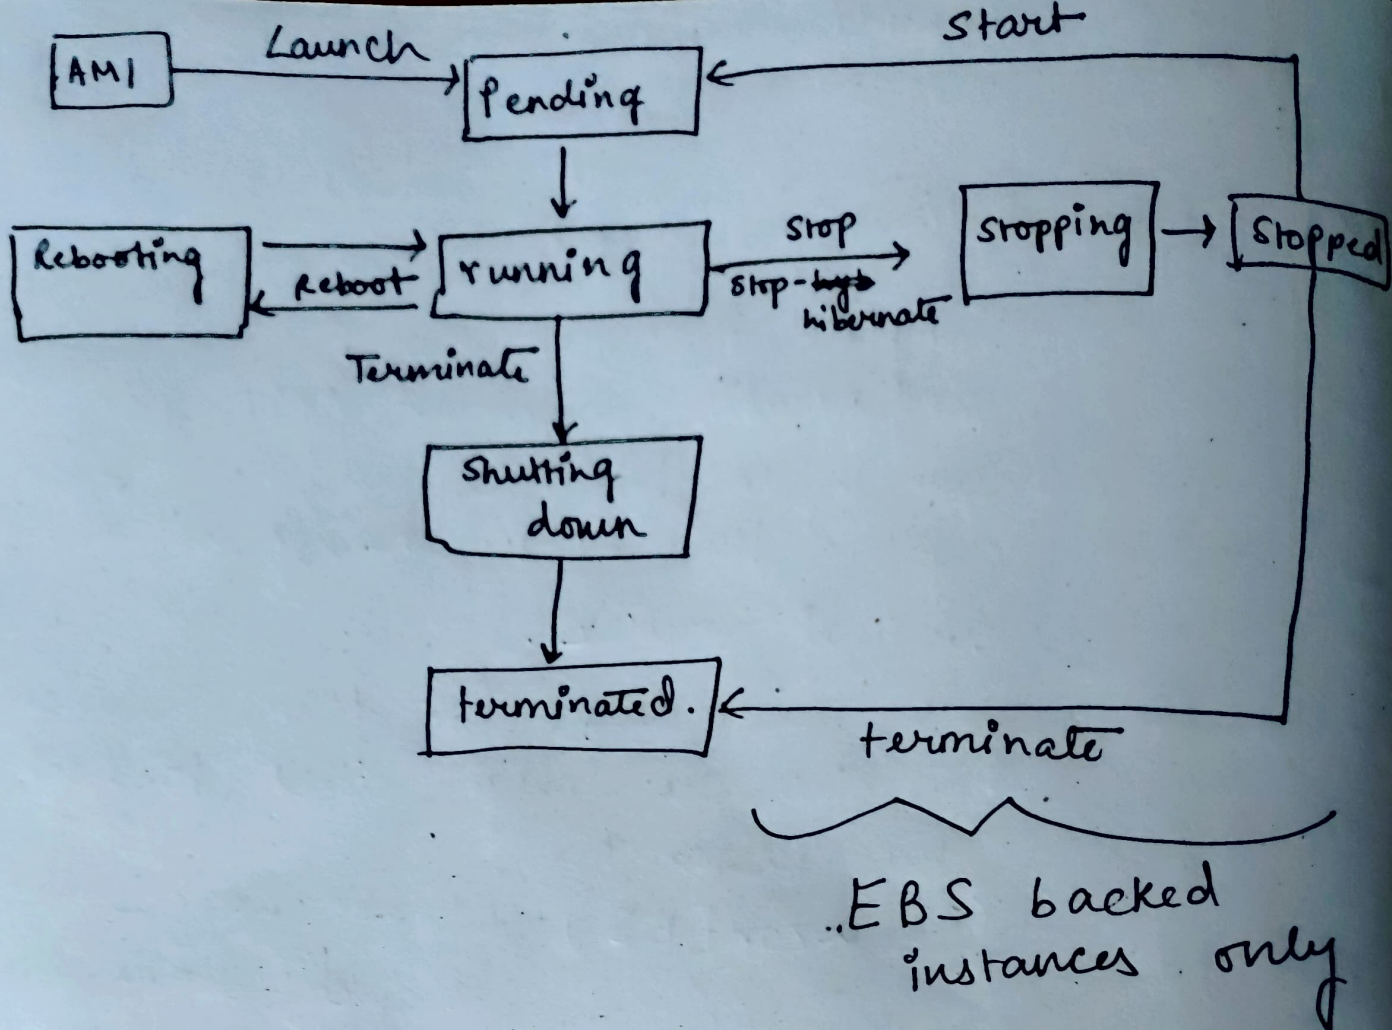 Start
Launch
AMI
Pending
Rebooting
Reboot
running
stop
stop-
hibernate
stopping
Stopped
Terminate
Shutting
down
terminated.
terminate
..EBS backed
instances only